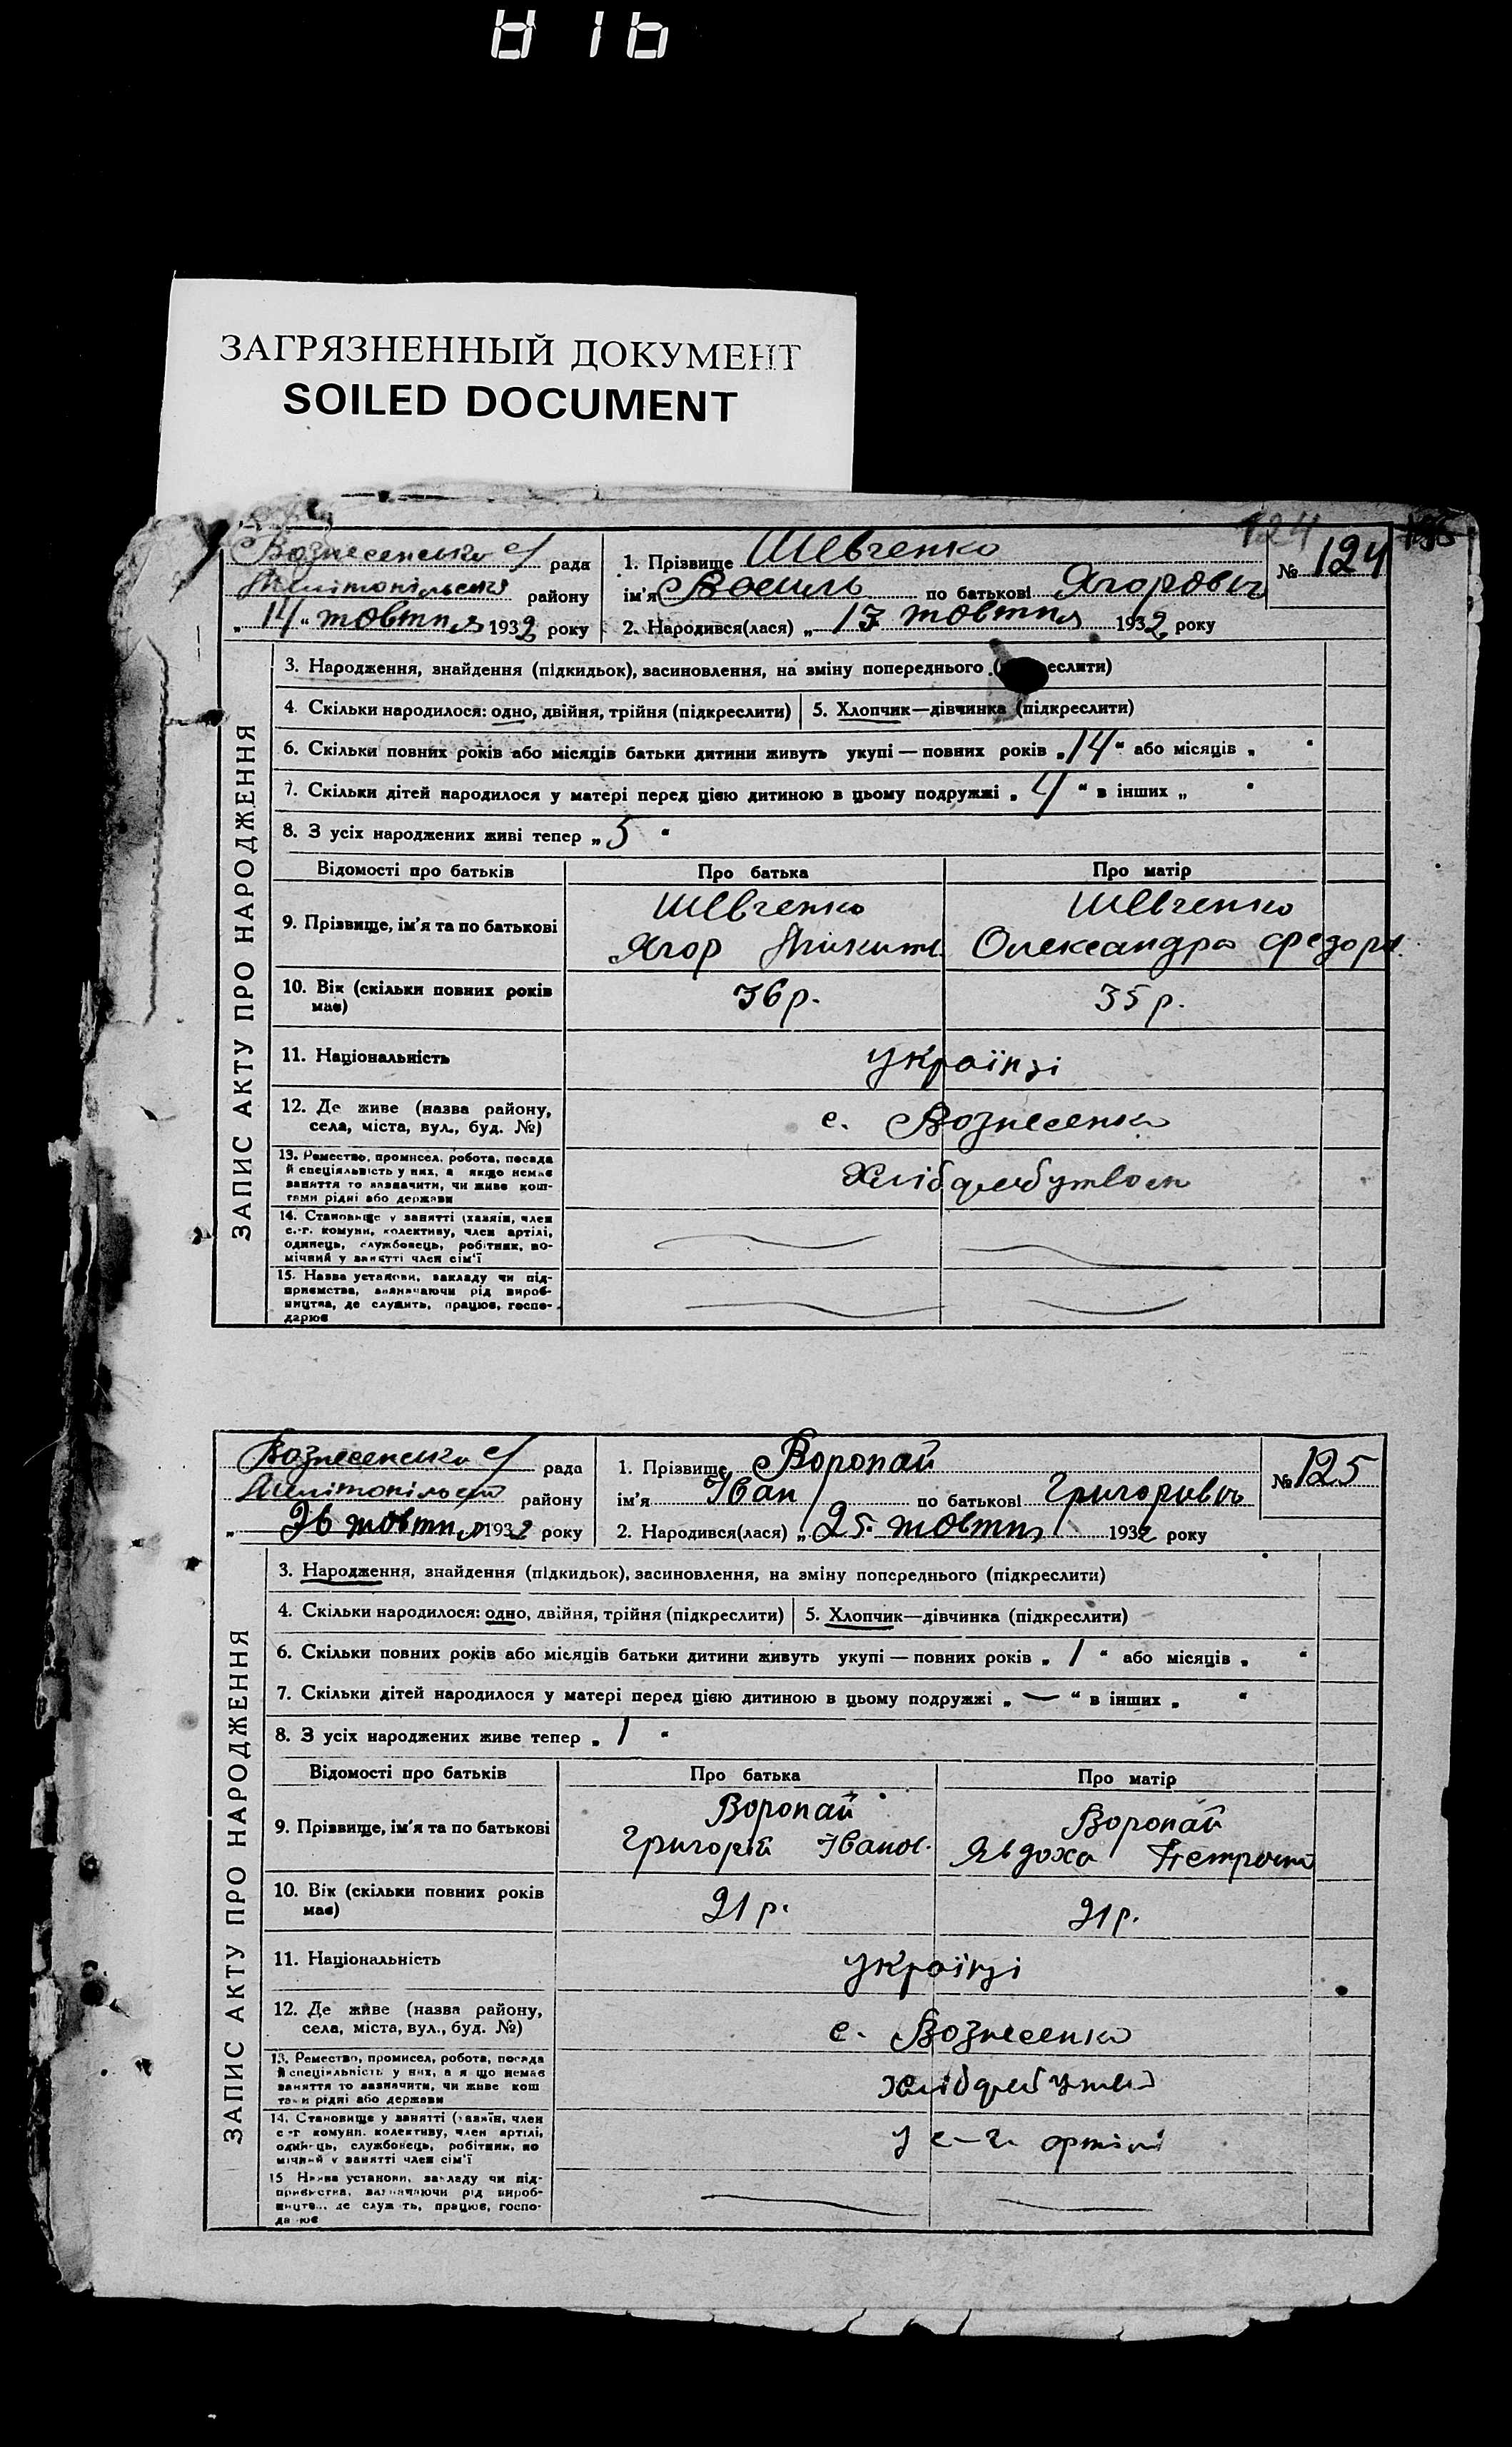 ЗАГРЯЗНЕННЫЙ ДОКУМЕНТ
SOILED DOCUMENT
124
Вознесенська с/ рада
Мелітопільськ району
„14“ жовтня 1932 року
1. Прізвище Шевченко
ім'я Василь по батькові Ягорович
2. Народився(лася) „13 жовтня 1932 року
№ 124
ЗАПИС АКТУ ПРО НАРОДЖЕННЯ
3. Народження, знайдення (підкидьок), засиновлення, на зміну попереднього (еслити)
4. Скільки народилося: одно, двійня, трійня (підкреслити) 5. Хлопчик—дівчинка (підкреслити)
6. Скільки повних років або місяців батьки дитини живуть укупі — повних років „14“ або місяців „ “
7. Скільки дітей народилося у матері перед цією дитиною в цьому подружжі „4“ в інших „ “
8. З усіх народжених живі тепер „5“
Відомості про батьків Про батька Про матір
9. Прізвище, ім'я та по батькові
Шевченко Шевченко
Ягор Микит. Олександра Федоров.
10. Вік (скільки повних років має) 36 р. 35 р.
11. Національність українці
12. Де живе (назва району, села, міста, вул., буд. №) с. Вознесенка
13. Ремество, промисел, робота, посада
й спеціяльність у них, а якщо немає
заняття то зазначити, чи живе кош-
тами рідні або держави
Хлібороб
14. Становище у занятті (хазяїн, член
с.-г. комуни, колективу, член артілі,
одинець, службовець, робітник, по-
мічний у занятті член сім'ї
15. Назва установи, закладу чи під-
приємства, зазначаючи рід вироб-
ництва, де служить, працює, госпо-
дарює
Вознесенська с/ рада
Мелітопільськ району
„26 жовтня 1932 року
1. Прізвище Воропай
ім'я Іван по батькові Григорович
2. Народився(лася) „25 жовтня 1932 року
№ 125
ЗАПИС АКТУ ПРО НАРОДЖЕННЯ
3. Народження, знайдення (підкидьок), засиновлення, на зміну попереднього (підкреслити)
4. Скільки народилося: одно, двійня, трійня (підкреслити) 5. Хлопчик—дівчинка (підкреслити)
6. Скільки повних років або місяців батьки дитини живуть укупі — повних років „1“ або місяців „ “
7. Скільки дітей народилося у матері перед цією дитиною в цьому подружжі „—“ в інших „ “
8. З усіх народжених живе тепер „1“
Відомості про батьків Про батька Про матір
9. Прізвище, ім'я та по батькові
Воропай Воропай
Григорій Іванов. Явдоха Петровна
10. Вік (скільки повних років має) 21 р. 21 р.
11. Національність українці
12. Де живе (назва району, села, міста, вул., буд. №) с. Вознесенка
13. Ремество, промисел, робота, посада
й спеціяльність у них, а якщо немає
заняття то зазначити, чи живе кош
тами рідні або держави
14. Становище у занятті (хазяїн, член
с-г комуни, колективу, член артілі,
одинець, службовець, робітник, по
мічний у занятті член сім'ї
у с-г. артілі
15 Назва установи, закладу чи під-
приємства, зазначаючи рід вироб-
ництва, де служить, працює, госпо-
дарює